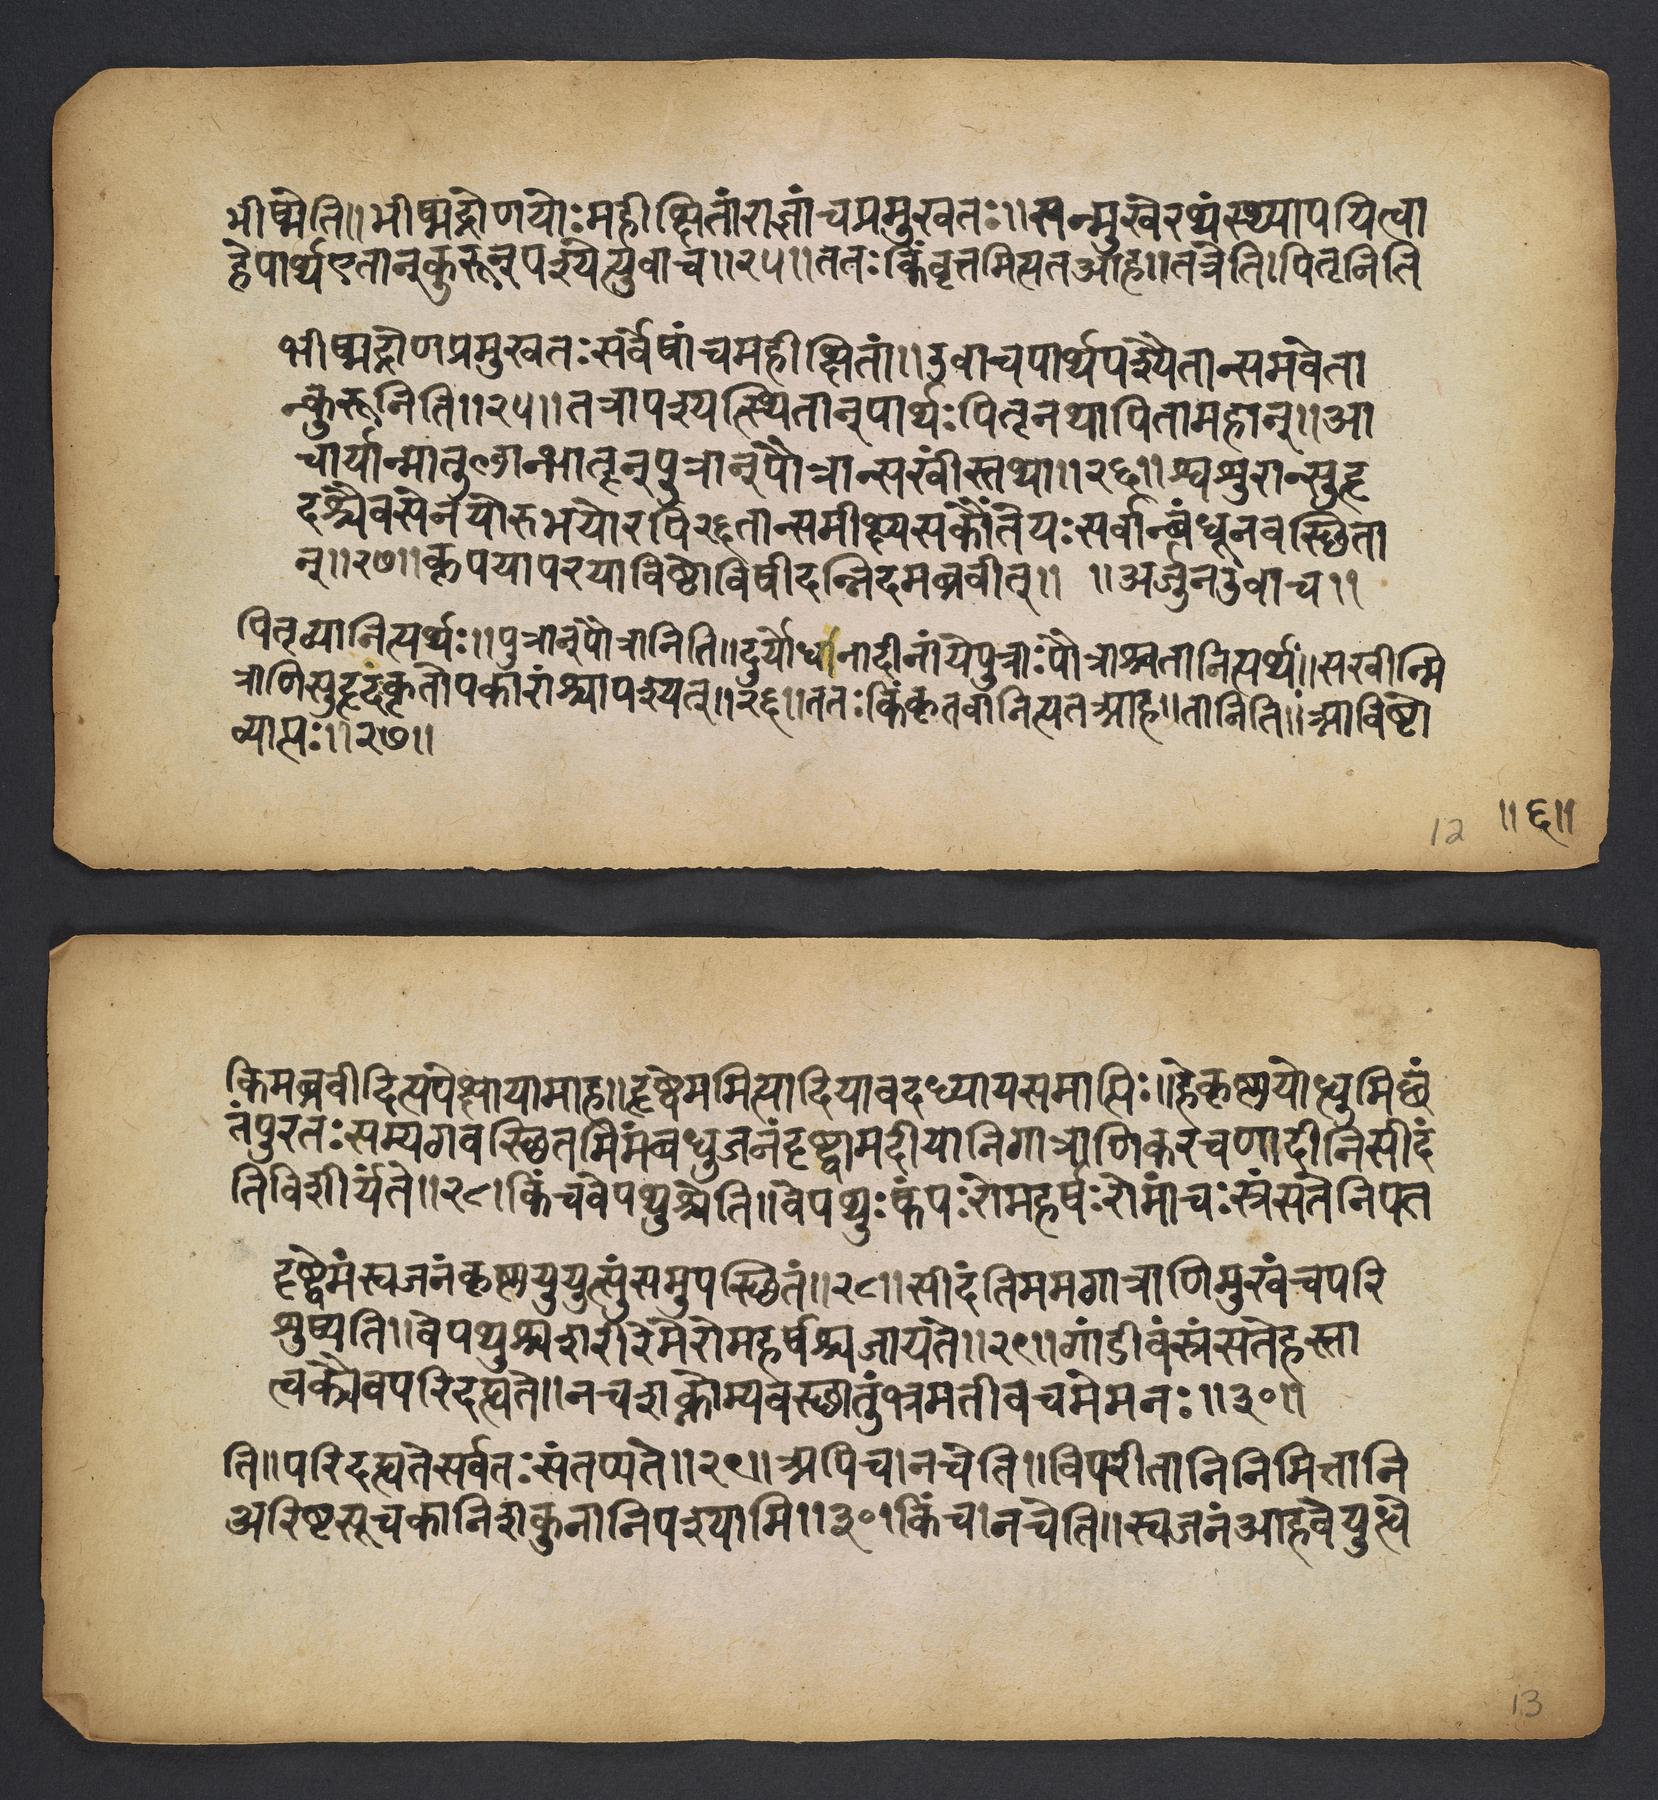 भीष्मेति॥भीष्मद्रोणयोःमहीक्षितांराज्ञांचप्रमुखतः॥सन्मुखेरथंस्थापयित्वा
हेपार्थएतान्कुरून्पश्येत्युवाच॥२५॥ततःकिंवृत्तमित्यतआह॥तत्रेति।पितृनिति
भीष्मद्रोणप्रमुखतःसर्वेषांचमहीक्षितां॥उवाचपार्थपश्यैतान्समवेता
न्कुरूनिति॥२५॥तत्रापश्यत्स्थितान्पार्थःपितृनथापितामहान्॥आ
चार्यान्मातुलान्भ्रातृन्पुत्रान्पौत्रान्सखींस्तथा॥२६॥श्वशुरान्सुहृ
दश्चैवसेनयोरुभयोरपि२६तान्समीक्ष्यसकौंतेयःसर्वान्बंधूनवस्छिता
न्॥२७॥कृपयापरयाविष्टोविषीदन्निदमब्रवीत्॥ ॥अर्जुनउवाच॥
पितृव्यानित्यर्थः॥पुत्रान्पौत्रानिति॥दुर्योधनादीनांयेपुत्राःपौत्राश्चतानित्यर्थः॥सखीन्मि
त्राणिसुहृदःकृतोपकारांश्चापश्यत्॥२६॥ततःकिंकृतवानित्यतआह॥तानिति॥आविष्टो
व्याप्तः॥२७॥
12 ॥६॥
किमब्रवीदित्यपेक्षायामाह॥दृष्ट्वेममित्यादियावदध्यायसमाप्तिः॥हेकृष्णयोध्धुमिछं
तंपुरतःसम्यगवस्छितमिमंबंधुजनंदृष्ट्वामदीयानिगात्राणिकरचणादीनिसीदं
तिविशीर्यंते॥२८।किंचवेपथुश्चेति॥वेपथुःकंपःरोमहर्षःरोमांचःस्त्रंसतेनिपत
दृष्ट्वेमंस्वजनंकृष्णयुयुत्सुंसमुपस्छितं॥२८॥सीदंतिममगात्राणिमुखंचपरि
शुष्यति॥वेपथुश्चशरीरेमेरोमहर्षश्चजायते॥२९॥गांडीवंस्त्रंसतेहस्ता
त्वक्चैवपरिदह्यते॥नचशक्नोम्यवस्छातुंभ्रमतीवचमेमनः॥३०॥
ति॥परिदह्यतेसर्वतःसंतप्यते॥२९॥अपिच।नचेति॥विपरीतानिनिमित्तानि
अरिष्टसूचकानिशकुनानिपश्यामि॥३०।किंच।नचेति॥स्वजनंआहवेयुध्धे
13